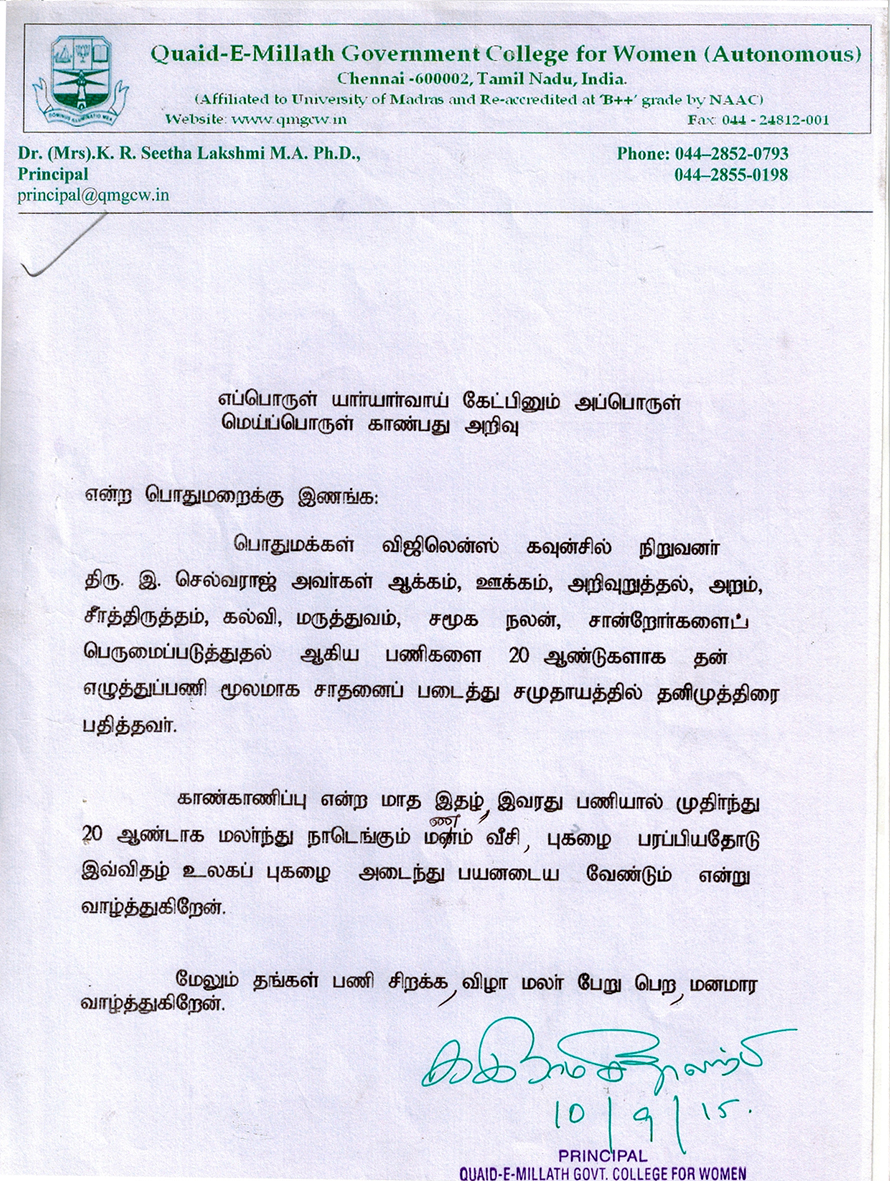 Quaid-E-Millath Government College for Women (Autonomous)
Chennai -600002, Tamil Nadu, India.
(Affiliated to University of Madras and Re-accredited at 'B++' grade by NAAC)
Website: www.qmgcw.in Fax: 044 - 24812-001
DOMINUS ILLUMINATIO MEA
Dr. (Mrs).K. R. Seetha Lakshmi M.A. Ph.D., Phone: 044–2852-0793
Principal 044–2855-0198
principal@qmgcw.in
எப்பொருள் யார்யார்வாய் கேட்பினும் அப்பொருள்
மெய்ப்பொருள் காண்பது அறிவு
என்ற பொதுமறைக்கு இணங்க:
பொதுமக்கள் விஜிலென்ஸ் கவுன்சில் நிறுவனர்
திரு. இ. செல்வராஜ் அவர்கள் ஆக்கம், ஊக்கம், அறிவுறுத்தல், அறம்,
சீர்த்திருத்தம், கல்வி, மருத்துவம், சமூக நலன், சான்றோர்களைப்
பெருமைப்படுத்துதல் ஆகிய பணிகளை 20 ஆண்டுகளாக தன்
எழுத்துப்பணி மூலமாக சாதனைப் படைத்து சமுதாயத்தில் தனிமுத்திரை
பதித்தவர்.
காண்காணிப்பு என்ற மாத இதழ், இவரது பணியால் முதிர்ந்து
20 ஆண்டாக மலர்ந்து நாடெங்கும் மணம் வீசி, புகழை பரப்பியதோடு
இவ்விதழ் உலகப் புகழை அடைந்து பயனடைய வேண்டும் என்று
வாழ்த்துகிறேன்.
மேலும் தங்கள் பணி சிறக்க, விழா மலர் பேறு பெற, மனமார
வாழ்த்துகிறேன்.
10/9/15.
PRINCIPAL
QUAID-E-MILLATH GOVT. COLLEGE FOR WOMEN